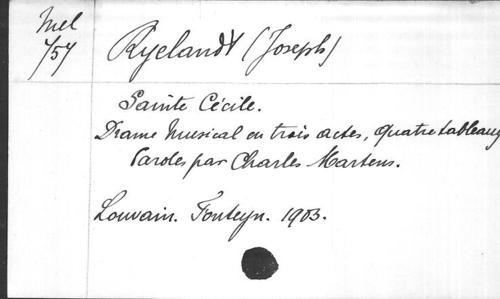 Mel
1/57
Ryelandt (Joseph)
Sainte Cécile.
Drame Musical en trois actes, quatre tableaux
Paroles par Charles Martens.
Louvain. Fonteyn. 1903.